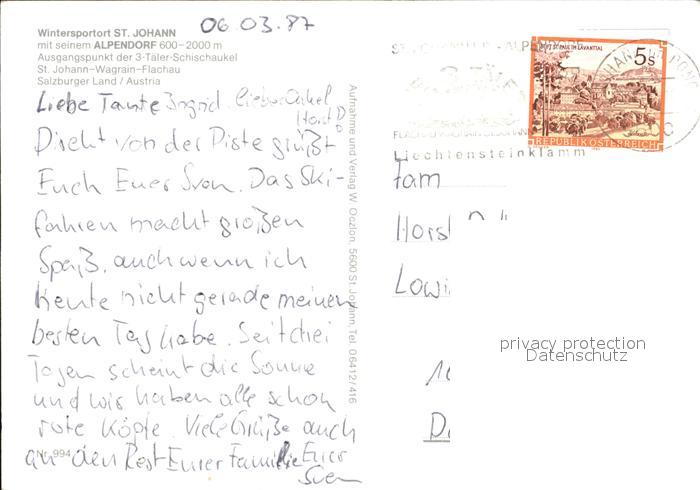 06.03.87
Wintersportort ST. JOHANN
mit seinem ALPENDORF 600–2000 m
Ausgangspunkt der 3-Täler-Schischaukel
St. Johann–Wagrain–Flachau
Salzburger Land / Austria
Liebe Tante Ingrid, lieber Onkel
Horst
Direkt von der Piste grüßt
Euch Euer Sven. Das Ski-
fahren macht großen
Spaß, auch wenn ich
heute nicht gerade meinen
besten Tag habe. Seit drei
Tagen scheint die Sonne
und wir haben alle schon
rote Köpfe. Viele Grüße auch
an den Rest Eurer Familie Euer
Sven
Nr. 994
Aufnahme und Verlag W. Oczlon, 5600 St. Johann, Tel. 06412/416
ALPENDORF
Liechtensteinklamm
STIFT ST. PAUL IM LAVANTTAL
5s
REPUBLIK ÖSTERREICH
Fam
Horst
privacy protection
Datenschutz